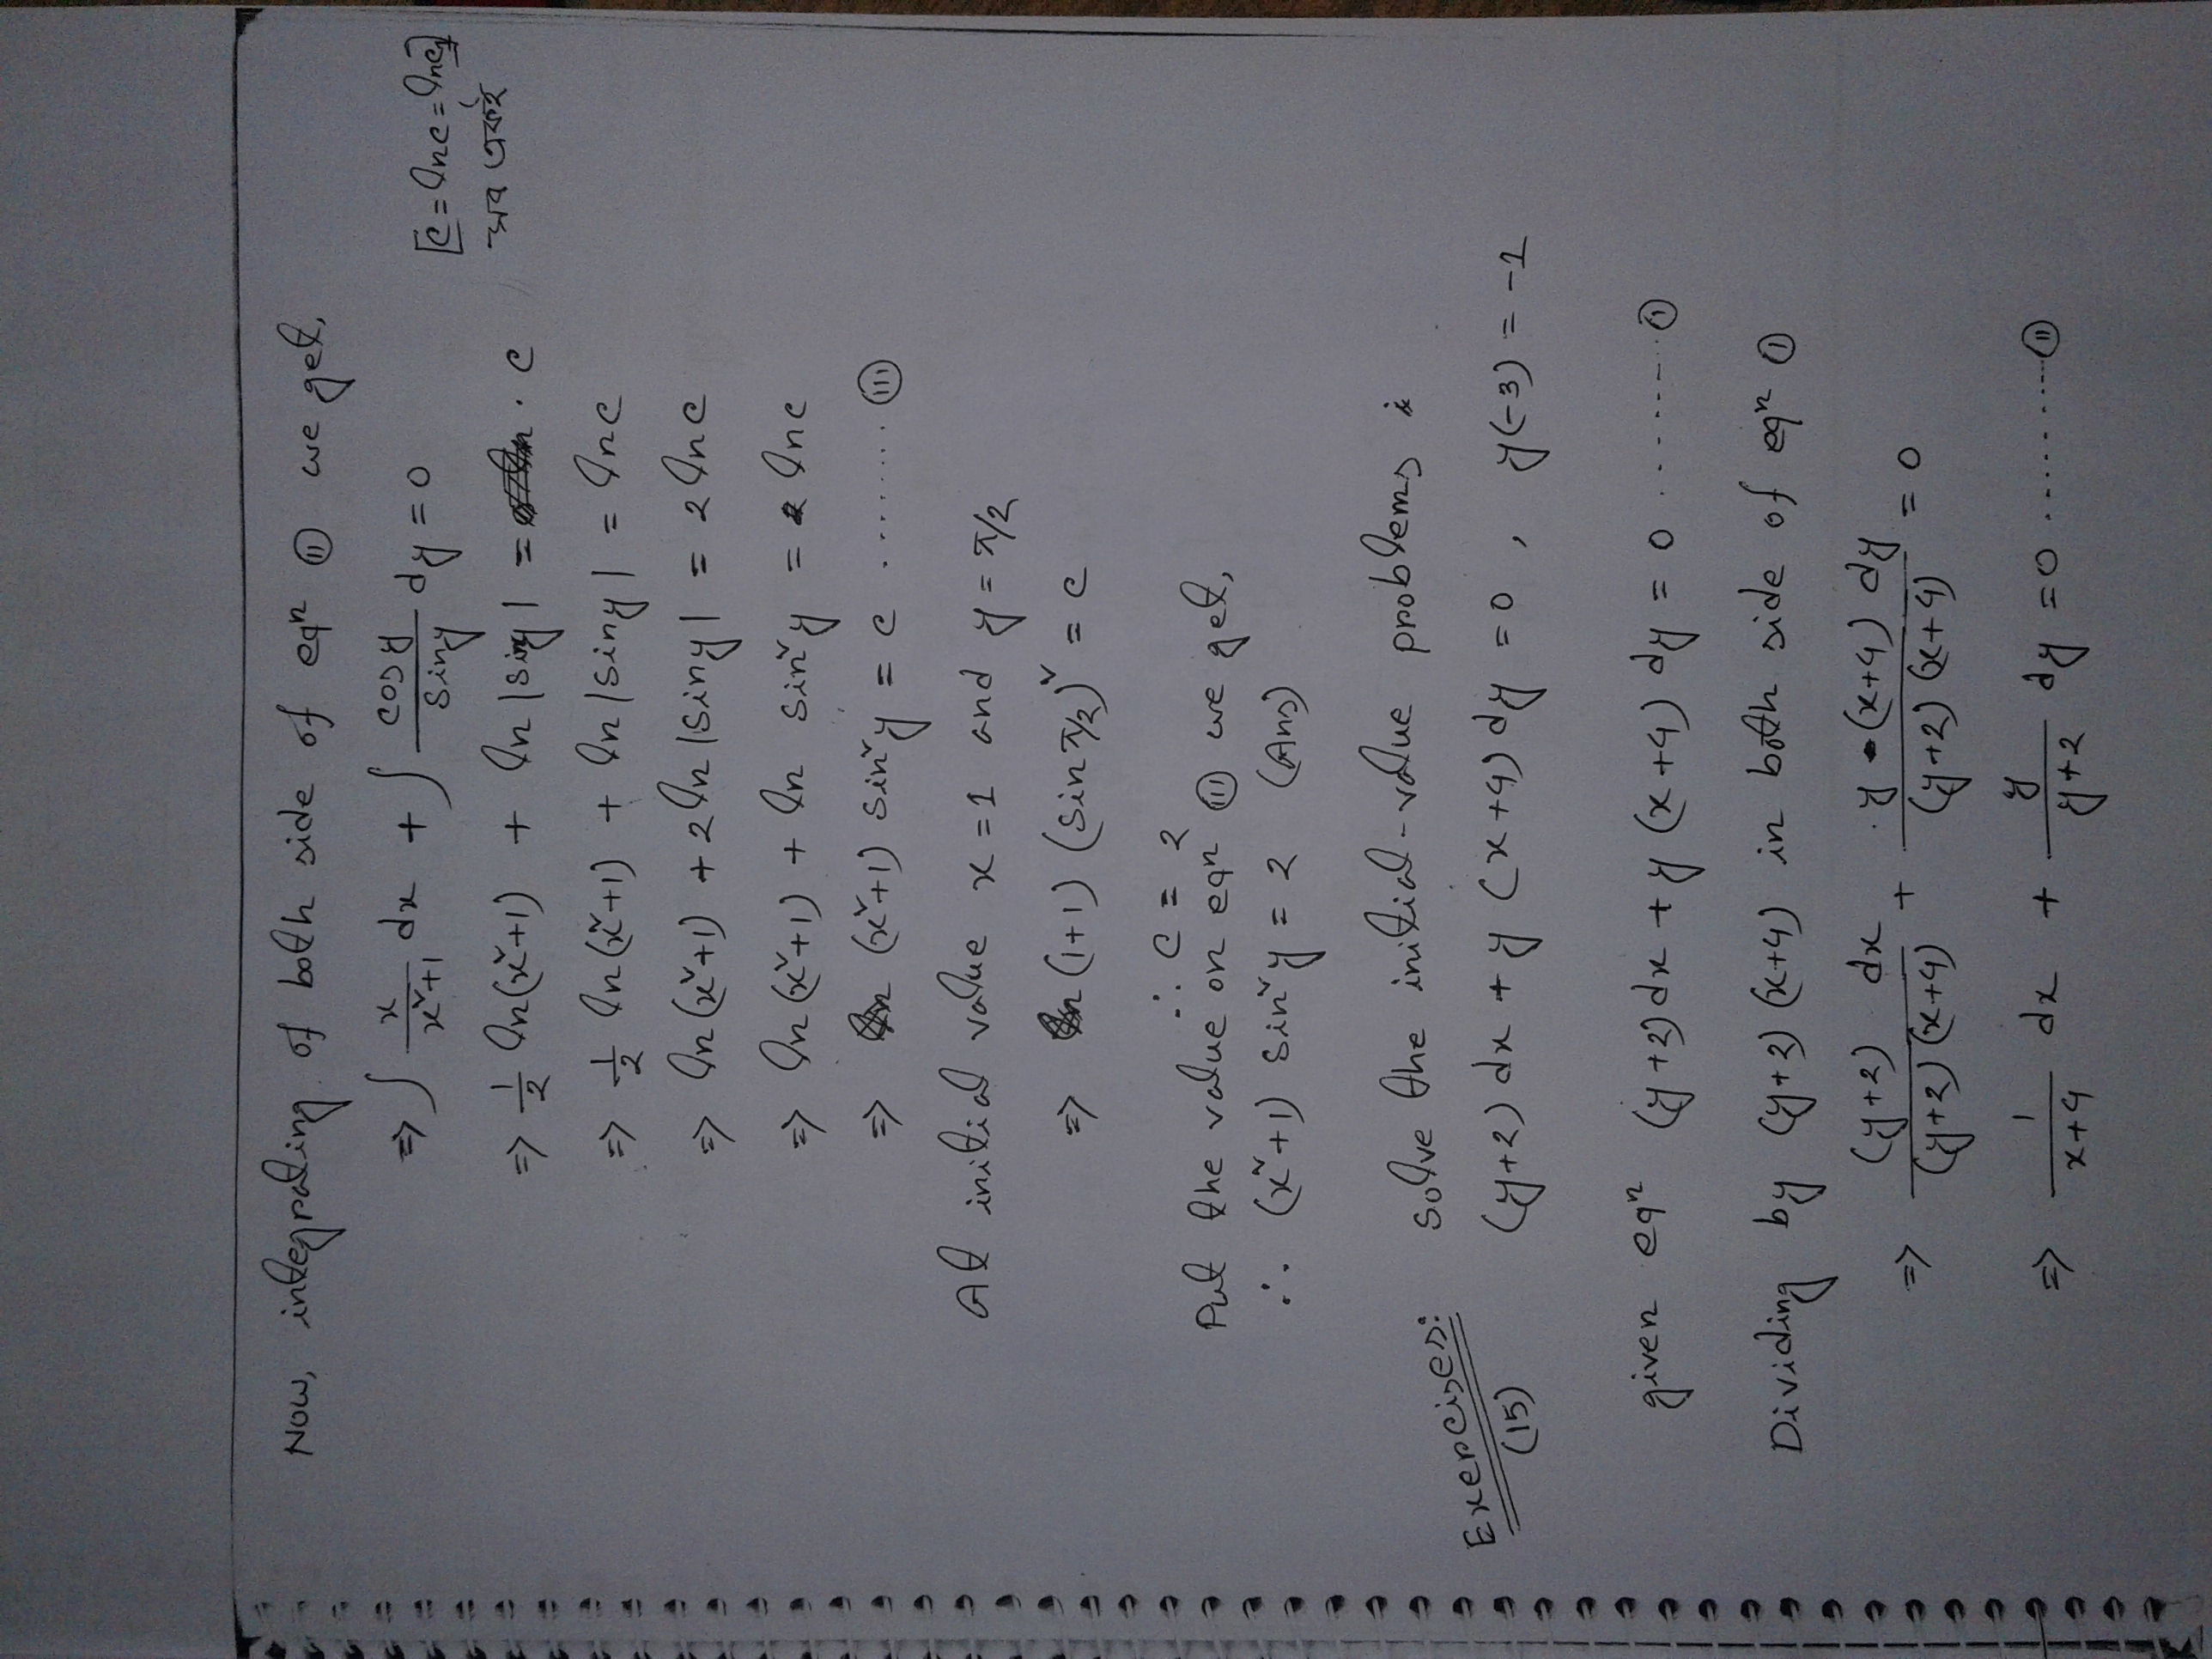 Now, integrating of both side of eqⁿ (ii) we get,
⇒ ∫ x/(x²+1) dx + ∫ cosy/siny dy = 0
[c = lnc = lnc₁]
সব একই
⇒ 1/2 ln(x²+1) + ln |siny| = . c
⇒ 1/2 ln(x²+1) + ln |siny| = lnc
⇒ ln(x²+1) + 2 ln |siny| = 2 lnc
⇒ ln(x²+1) + ln sin²y = lnc
⇒ (x²+1) sin²y = c ........ (iii)
At initial value x = 1 and y = π/2
⇒ (1+1) (sin π/2)² = c
∴ c = 2
Put the value on eqⁿ (iii) we get,
∴ (x²+1) sin²y = 2 (Ans)
Exercises: Solve the initial-value problems :
(15) (y+2) dx + y (x+4) dy = 0 , y(-3) = -1
given eqⁿ (y+2) dx + y (x+4) dy = 0 ........ (i)
Dividing by (y+2) (x+4) in both side of eqⁿ (i)
⇒ (y+2) dx/(y+2) (x+4) + y (x+4) dy/(y+2) (x+4) = 0
⇒ 1/(x+4) dx + y/(y+2) dy = 0 ......... (ii)